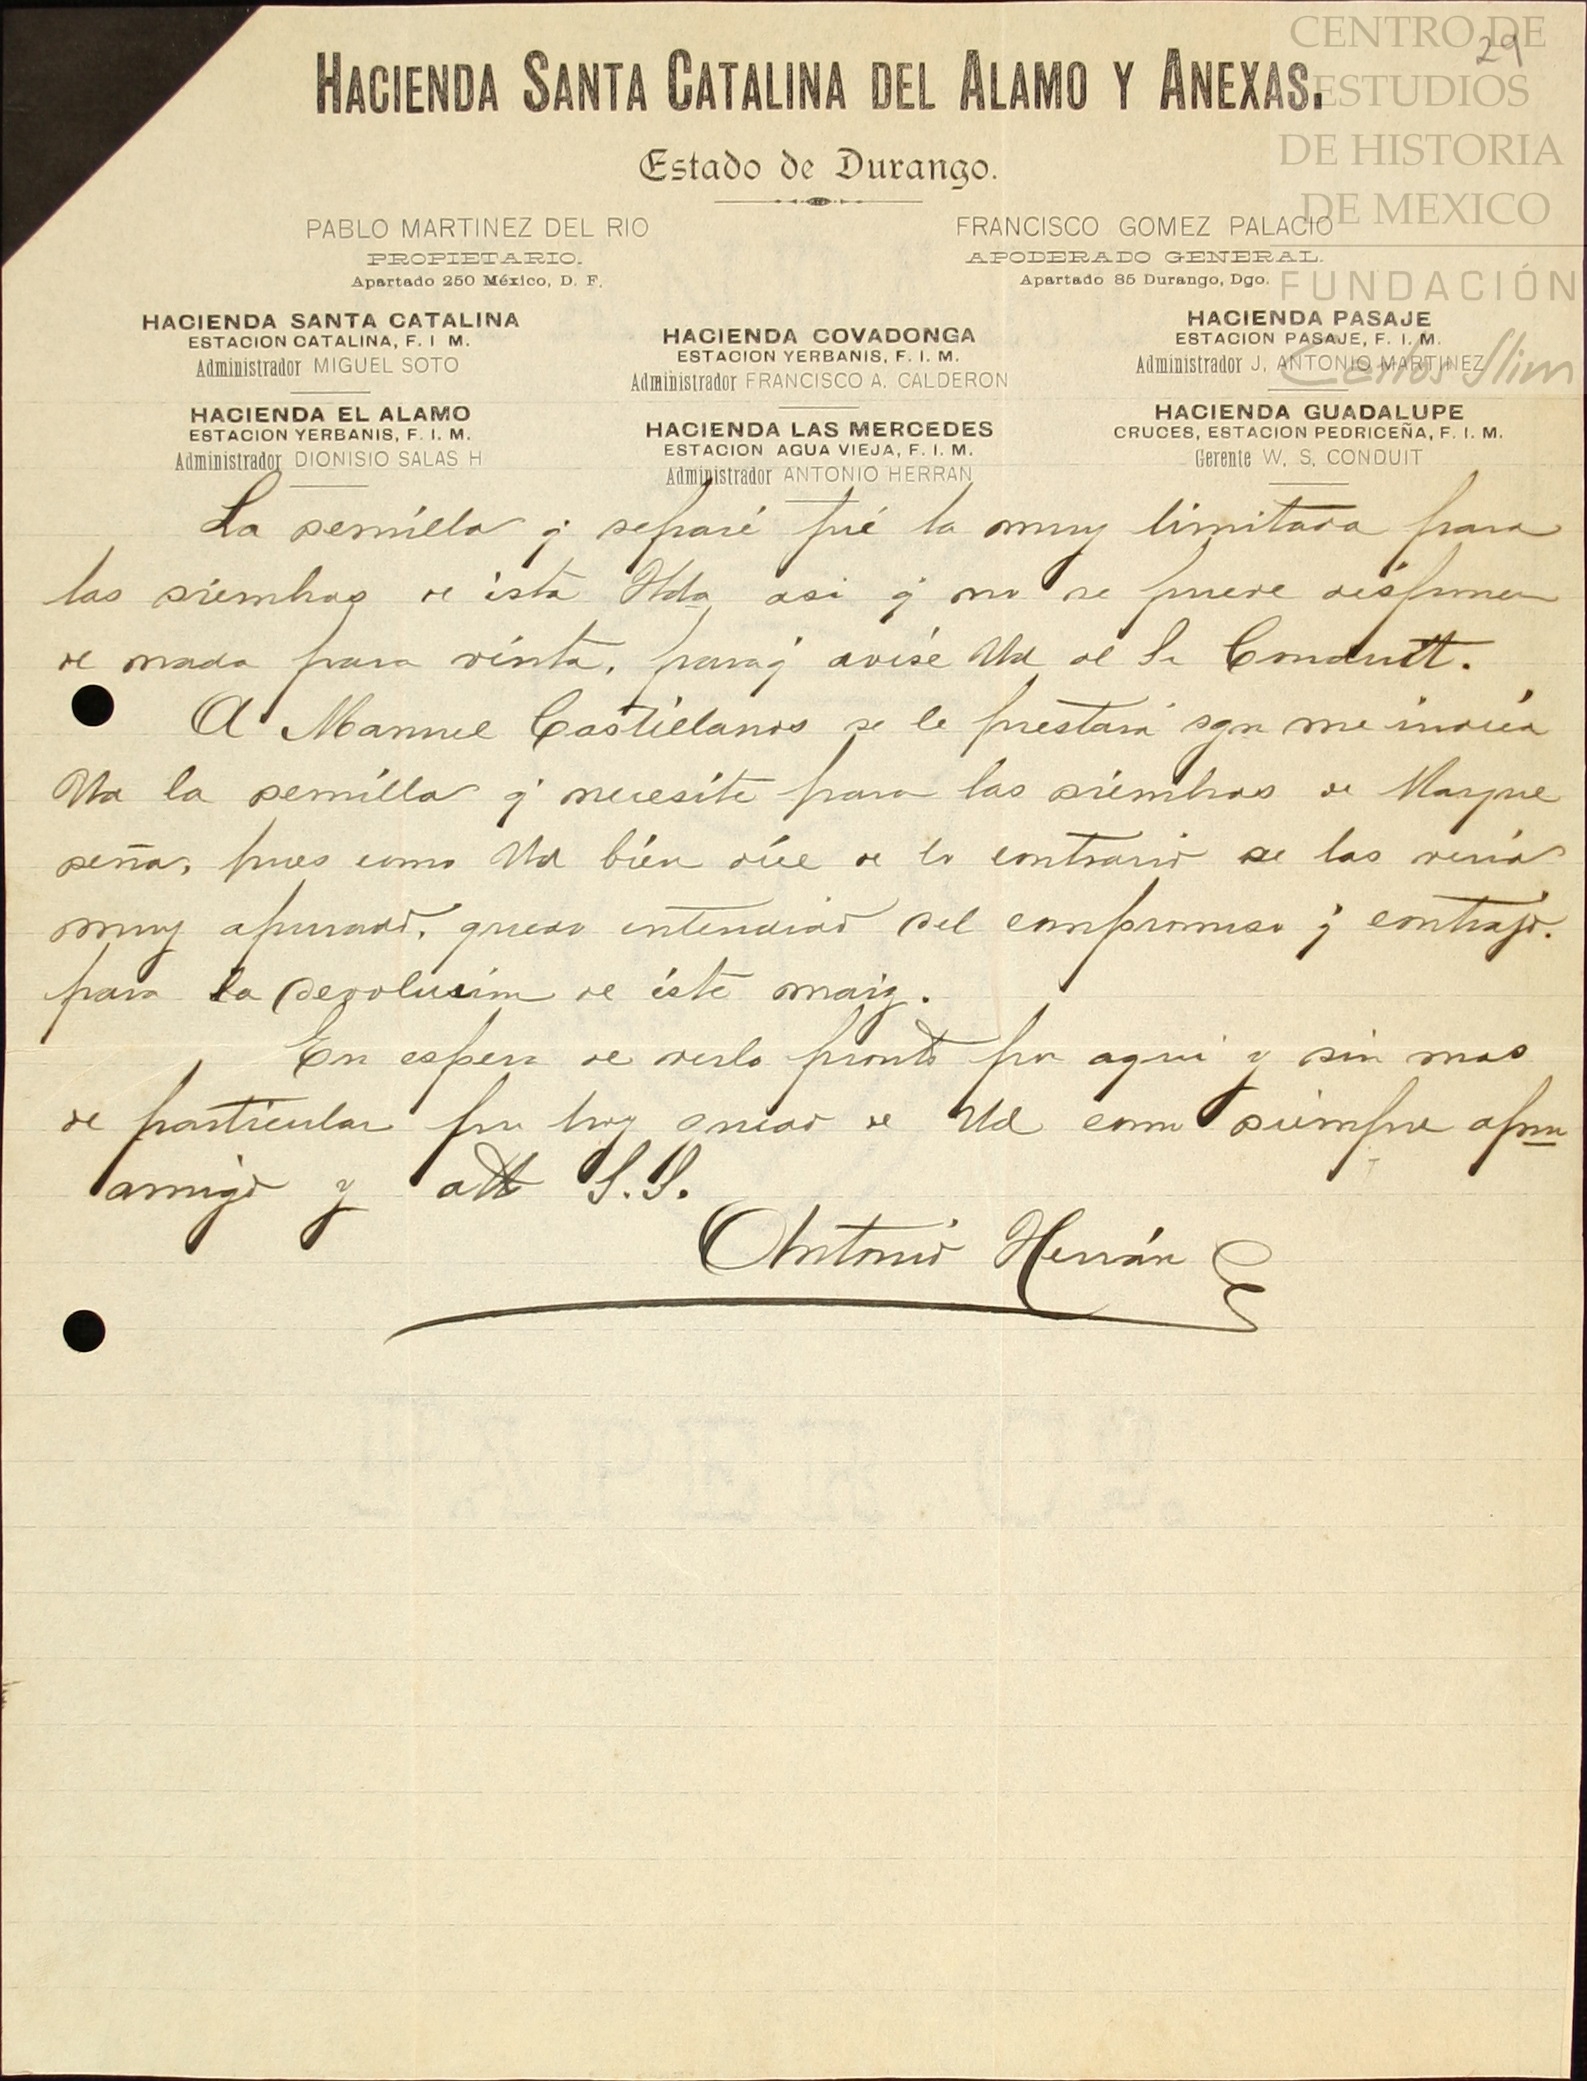 CENTRO DE
ESTUDIOS
DE HISTORIA
DE MEXICO
FUNDACIÓN
Carlos Slim
29
HACIENDA SANTA CATALINA DEL ALAMO Y ANEXAS.
Estado de Durango.
PABLO MARTINEZ DEL RIO
PROPIETARIO.
Apartado 250 México, D. F.
FRANCISCO GOMEZ PALACIO
APODERADO GENERAL.
Apartado 85 Durango, Dgo.
HACIENDA SANTA CATALINA
ESTACION CATALINA, F. I M.
Administrador MIGUEL SOTO
HACIENDA EL ALAMO
ESTACION YERBANIS, F. I. M.
Administrador DIONISIO SALAS H
HACIENDA COVADONGA
ESTACION YERBANIS, F. I. M.
Administrador FRANCISCO A. CALDERON
HACIENDA LAS MERCEDES
ESTACION AGUA VIEJA, F. I. M.
Administrador ANTONIO HERRAN
HACIENDA PASAJE
ESTACION PASAJE, F. I. M.
Administrador J. ANTONIO MARTINEZ
HACIENDA GUADALUPE
CRUCES, ESTACION PEDRICEÑA, F. I. M.
Gerente W. S. CONDUIT
La semilla q separé fué la muy limitada para
las siembras de ésta Hda asi q no se puede disponer
de nada para vénta, para q avise Ud al Sr Conduitt.
A Manuel Castillanos se le prestará sgn me indica
Ud la semilla q necesite para las siémbras de Marque
seña, pues como Ud bién dice de lo contrario se las veria
muy apurado, quedo entendido del compromiso q contrajo.
para la devolusión de éste maiz.
En espera de verlo pronto por aqui y sin mas
de particular por hoy quedo de Ud como siempre afmo
amigo y att S.S.
Antonio Herrán